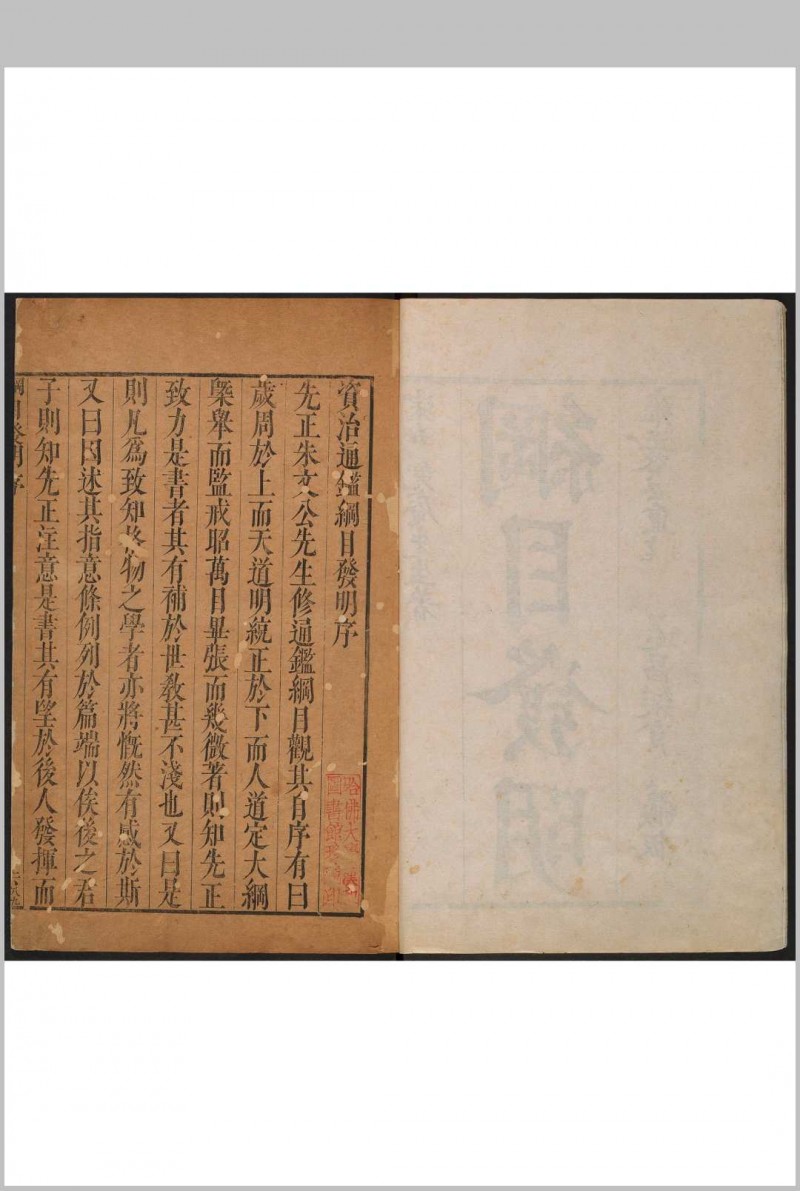 資治通鑑綱目發明序
先正朱文公先生修通鑑綱目觀其自序有曰
歲周於上而天道明統正於下而人道定大綱
槩舉而監戒昭萬目畢張而幾微著則知先正
致力是書者其有補於世敎甚不淺也又曰是
則凡爲致知格物之學者亦將慨然有感於斯
又曰因述其指意條例列於篇端以俟後之君
子則知先正注意是書其有望於後人發揮而
綱目發明序
綱目發明